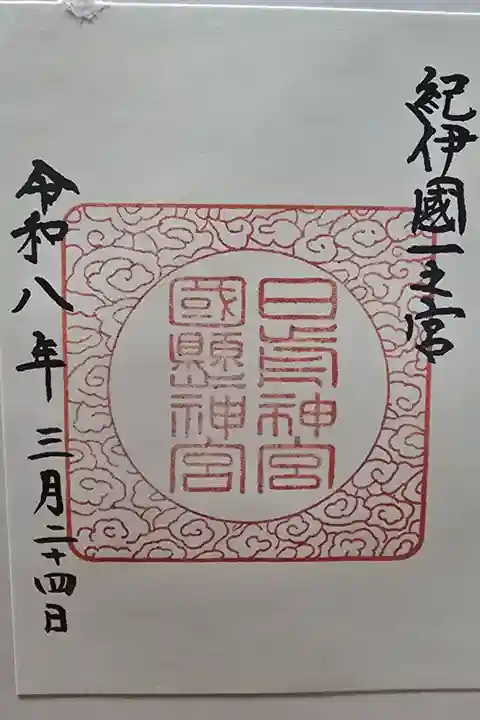 紀伊國一之宮
日前神宮
國懸神宮
令和八年三月二十四日